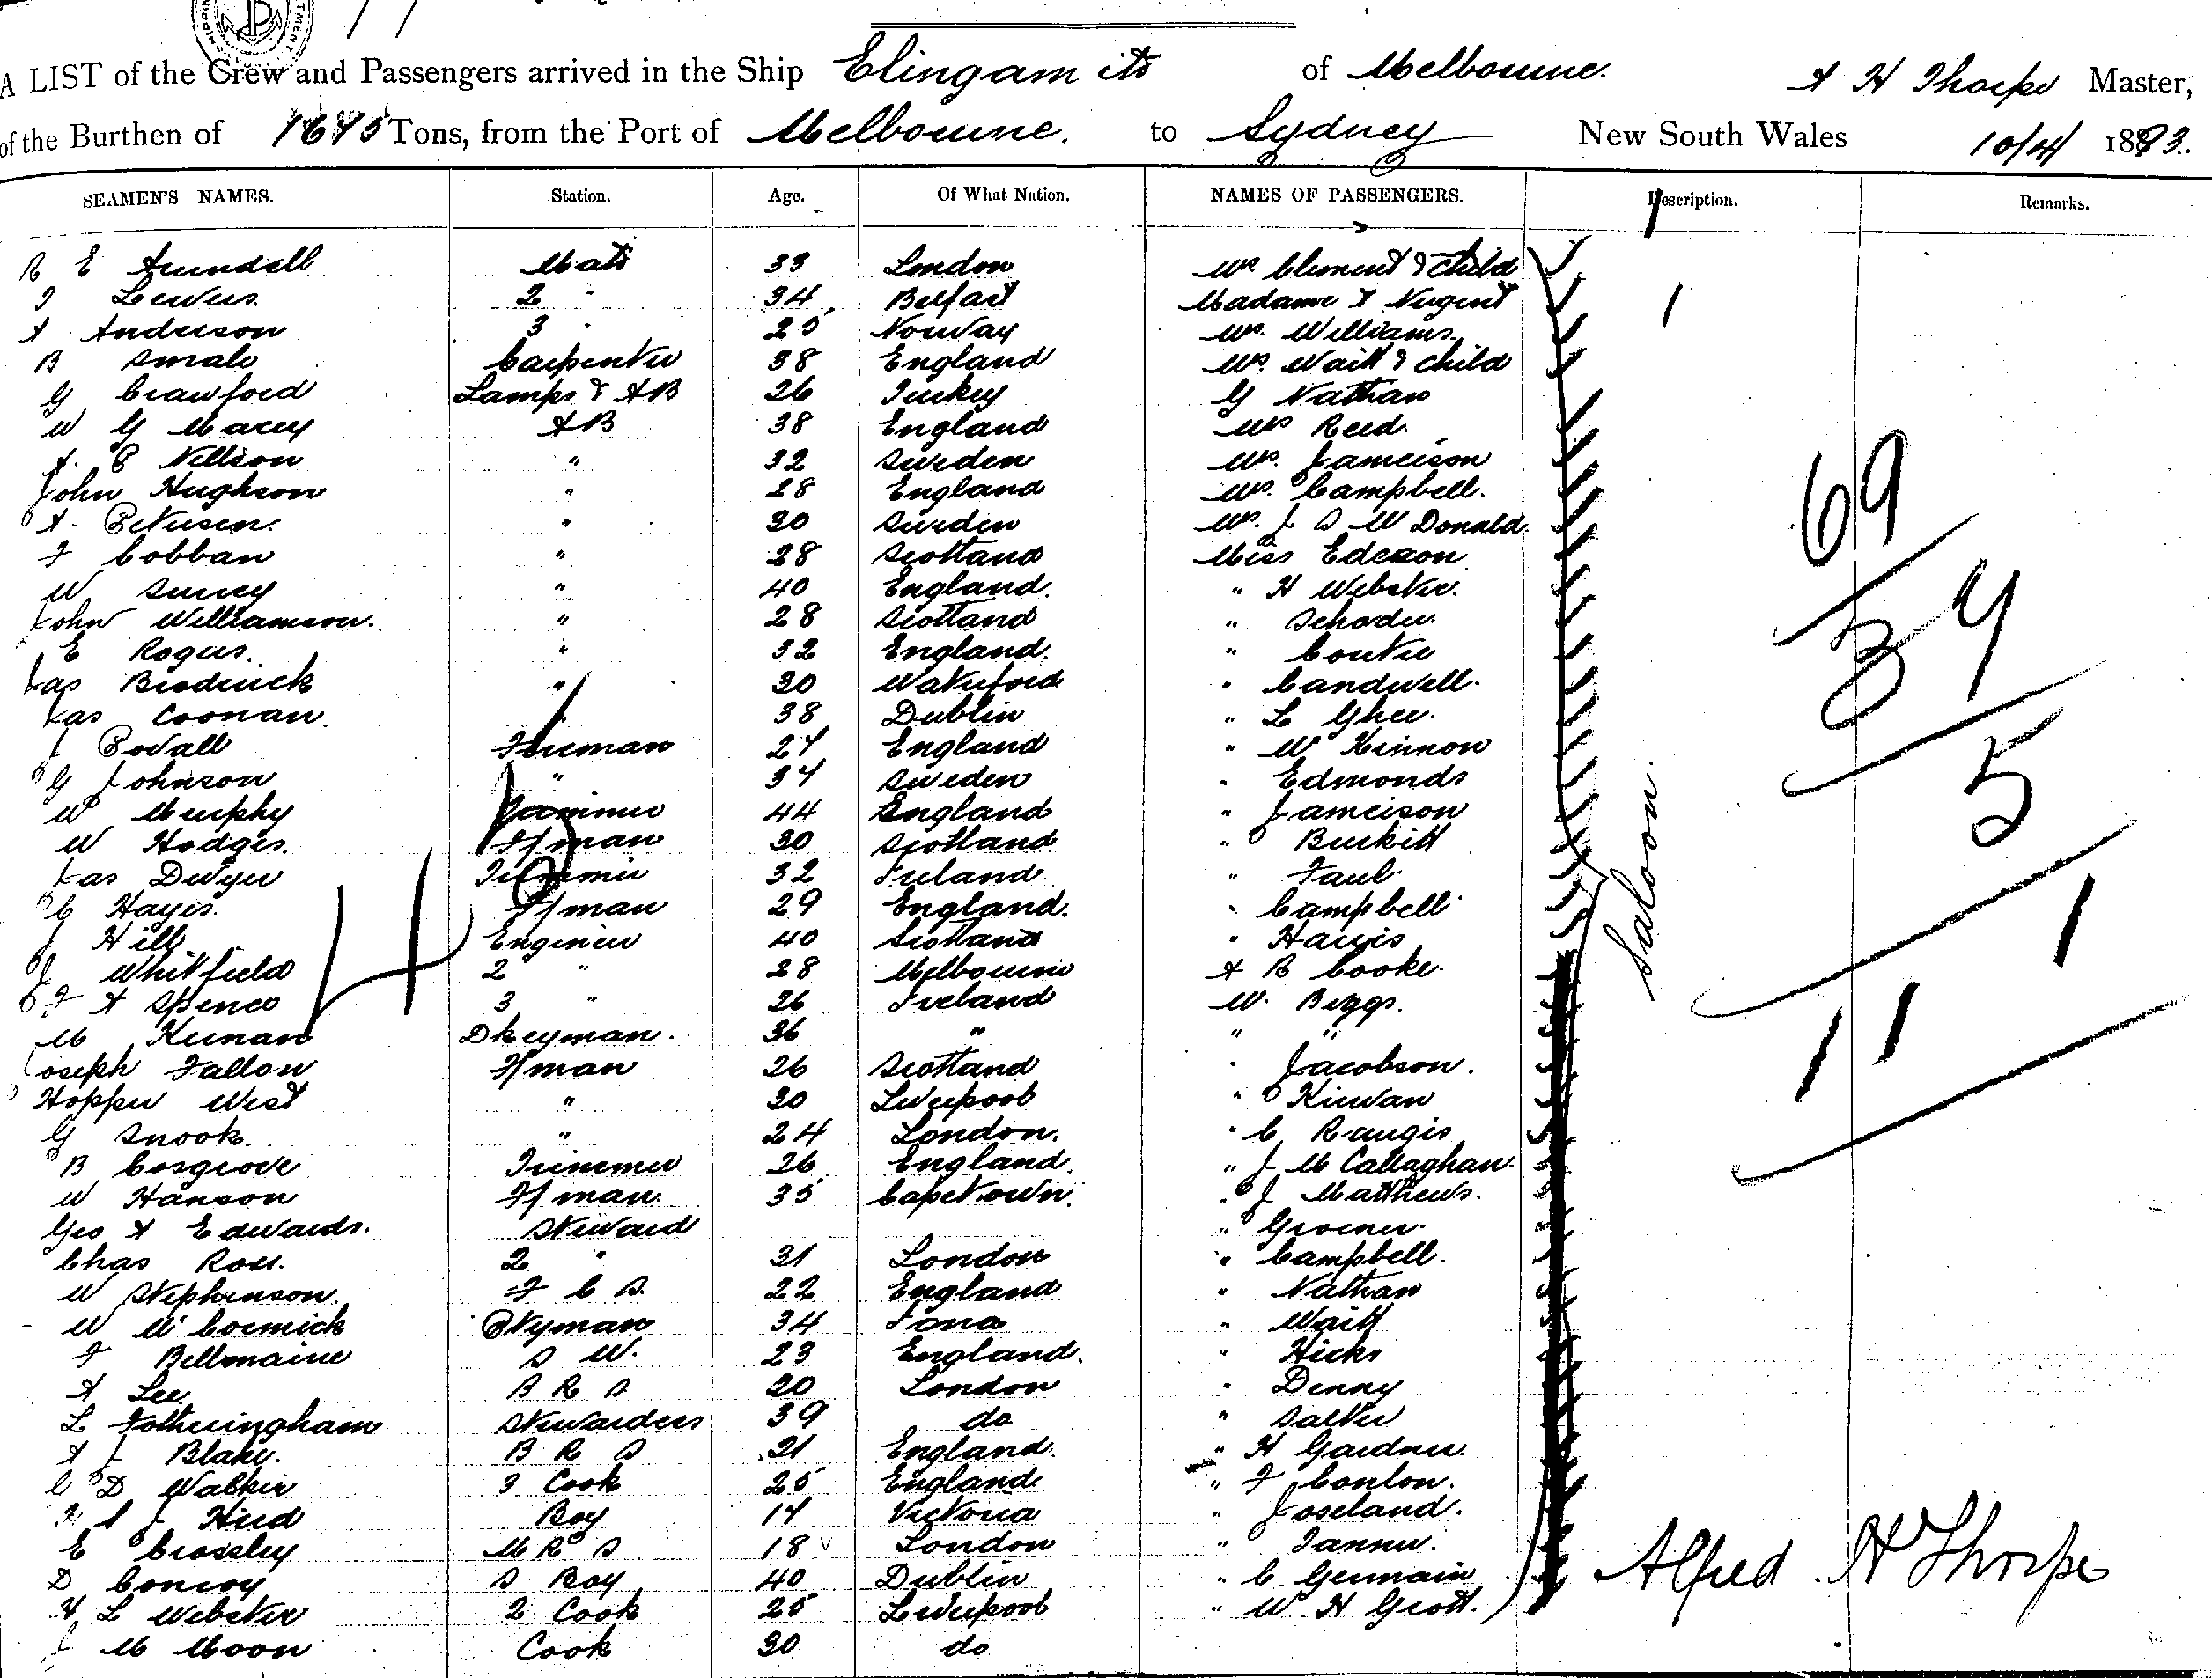 A LIST of the Crew and Passengers arrived in the Ship Elingamite of Melbourne. A H Thorpe Master,
of the Burthen of 1675 Tons, from the Port of Melbourne. to Sydney New South Wales 10/4/ 1893.
SEAMEN'S NAMES. Station. Age. Of What Nation. NAMES OF PASSENGERS. Description. Remarks.
R E Arundell Mate 33 London Mrs. Clement & Child
Lewis 2 " 34 Belfast Madame & Nugent
A Anderson 3 " 25 Norway Mrs. Williams
B Smale Carpenter 38 England Mrs. Waitt & Child
G Crawford Lamps & AB 26 Turkey G Nathan
W G Macey AB 38 England Mrs Reed.
A. P Nellson " 32 Sweden Mrs. Jameison
John Hughson " 28 England Mrs. Campbell.
A. Petersen. " 30 Sweden Mrs. J S Mc Donald.
F Cobban " 28 Scotland Miss Edeson
W Surrey " 40 England. " H Webster.
John Williamson. " 28 Scotland " Schoder.
E Rogers. " 32 England. " Coutie
Jas Broderick " 30 Waterford " Candwell.
Jas Coonan. " 38 Dublin " L Ghee.
J Bovall Fireman 27 England " Mc Kinnon
G Johnson " 34 Sweden " Edmonds
W Murphy Trimmer 44 England " Jameison
W Hodges. F/man 30 Scotland " Burkitt
Jas Dwyer Trimmer 32 Ireland " Faul.
C Hayes. F/man 29 England. " Campbell
J Hill Engineer 40 Scotland " Hayes
J Whitfield 2 " 28 Melbourne A B Cooke.
F A Spence 3 " 26 Ireland W. Biggs.
M Keenan Dkeyman. 36 " " "
Joseph Fallon F/man 26 Scotland " Jacobson.
Hopper West " 30 Liverpool " Kirwan
G Snook. " 24 London. " C Raugis
B Cosgrove Trimmer 26 England. " J Mc Callaghan.
W Hanson F/man. 35 Capetown. " J Matthews.
Geo A Edwards. Steward " Groener.
Chas Ross. 2 " 31 London " Campbell.
W Stephenson. F C S. 22 England " Nathan
W Mc Cormick Ptyman 34 Iona " Waitt
F Bellmaine S W. 23 England. " Hicks
A Lee. B R S 20 London " Denny
L Fotheringham Stewardess 39 do " Salter
A J Blake. B R S 21 England. " H Gardner.
C D Walker 3 Cook 25 England " F Conlon.
J Hird Boy 14 Victoria " Joseland.
E Crossley M R S 18 London " Tanner.
D Conroy S Boy 40 Dublin " C Germain
H L Webster 2 Cook 25 Liverpool " W H Grott.
J M Moon Cook 30 do
Saloon.
1
69
34
5
1
11
43
Alfred H Thorpe